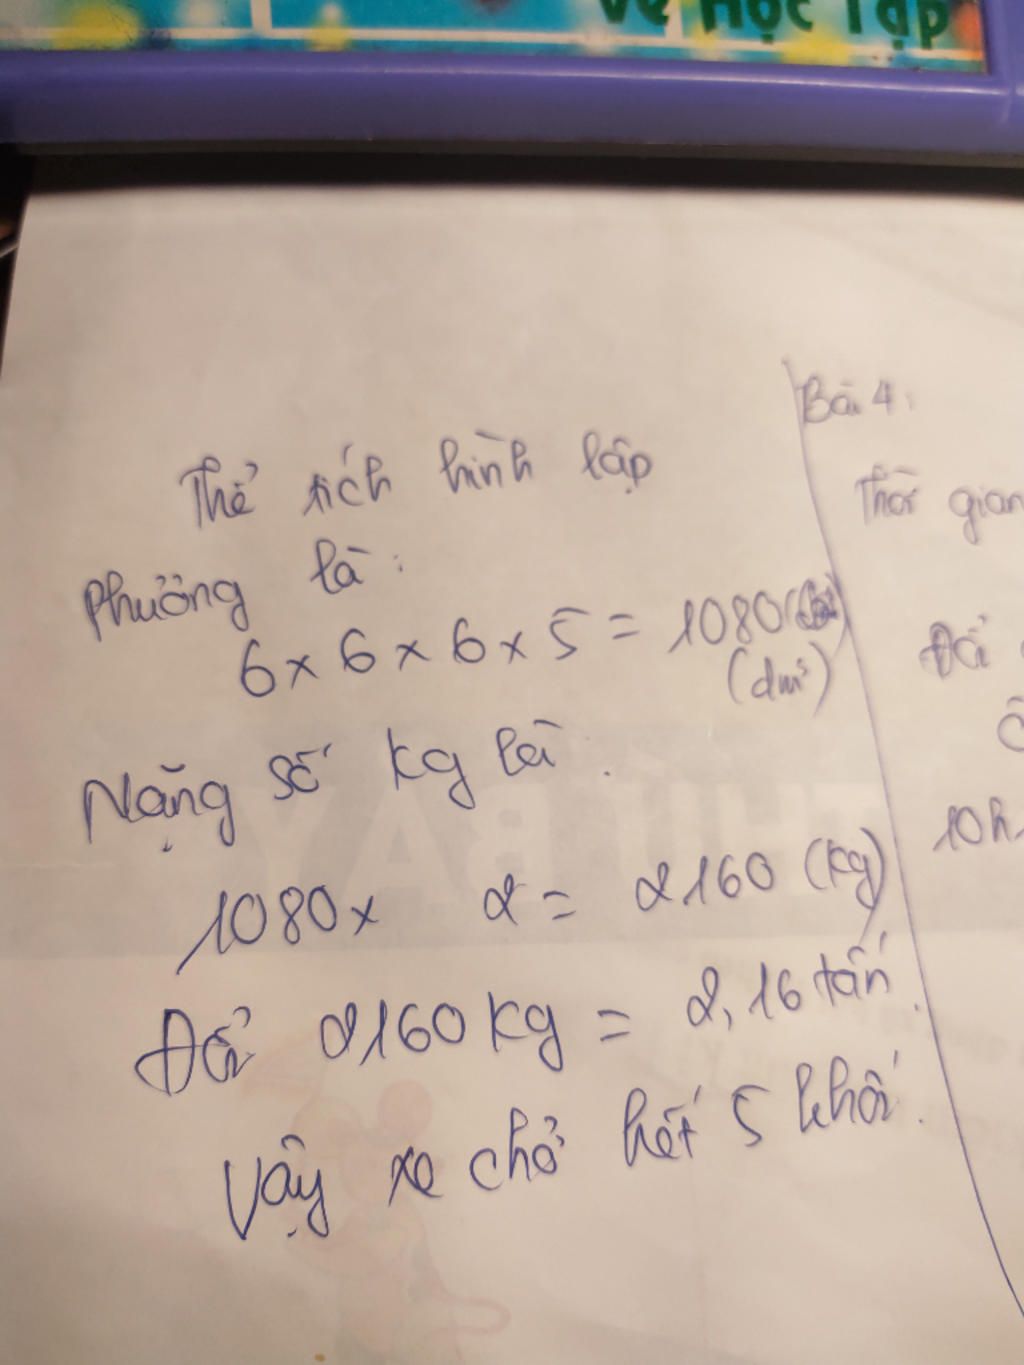 Về Học Tập
Thể tích hình lập
phưởng là:
6 x 6 x 6 x 5 = 1080
(dm³)
Nặng số kg là:
1080 x 2 = 2160 (kg)
Đổi 2160 kg = 2,16 tấn.
Vậy xe chở hết 5 khối.
Bài 4:
Thời gian
Đổi
10h